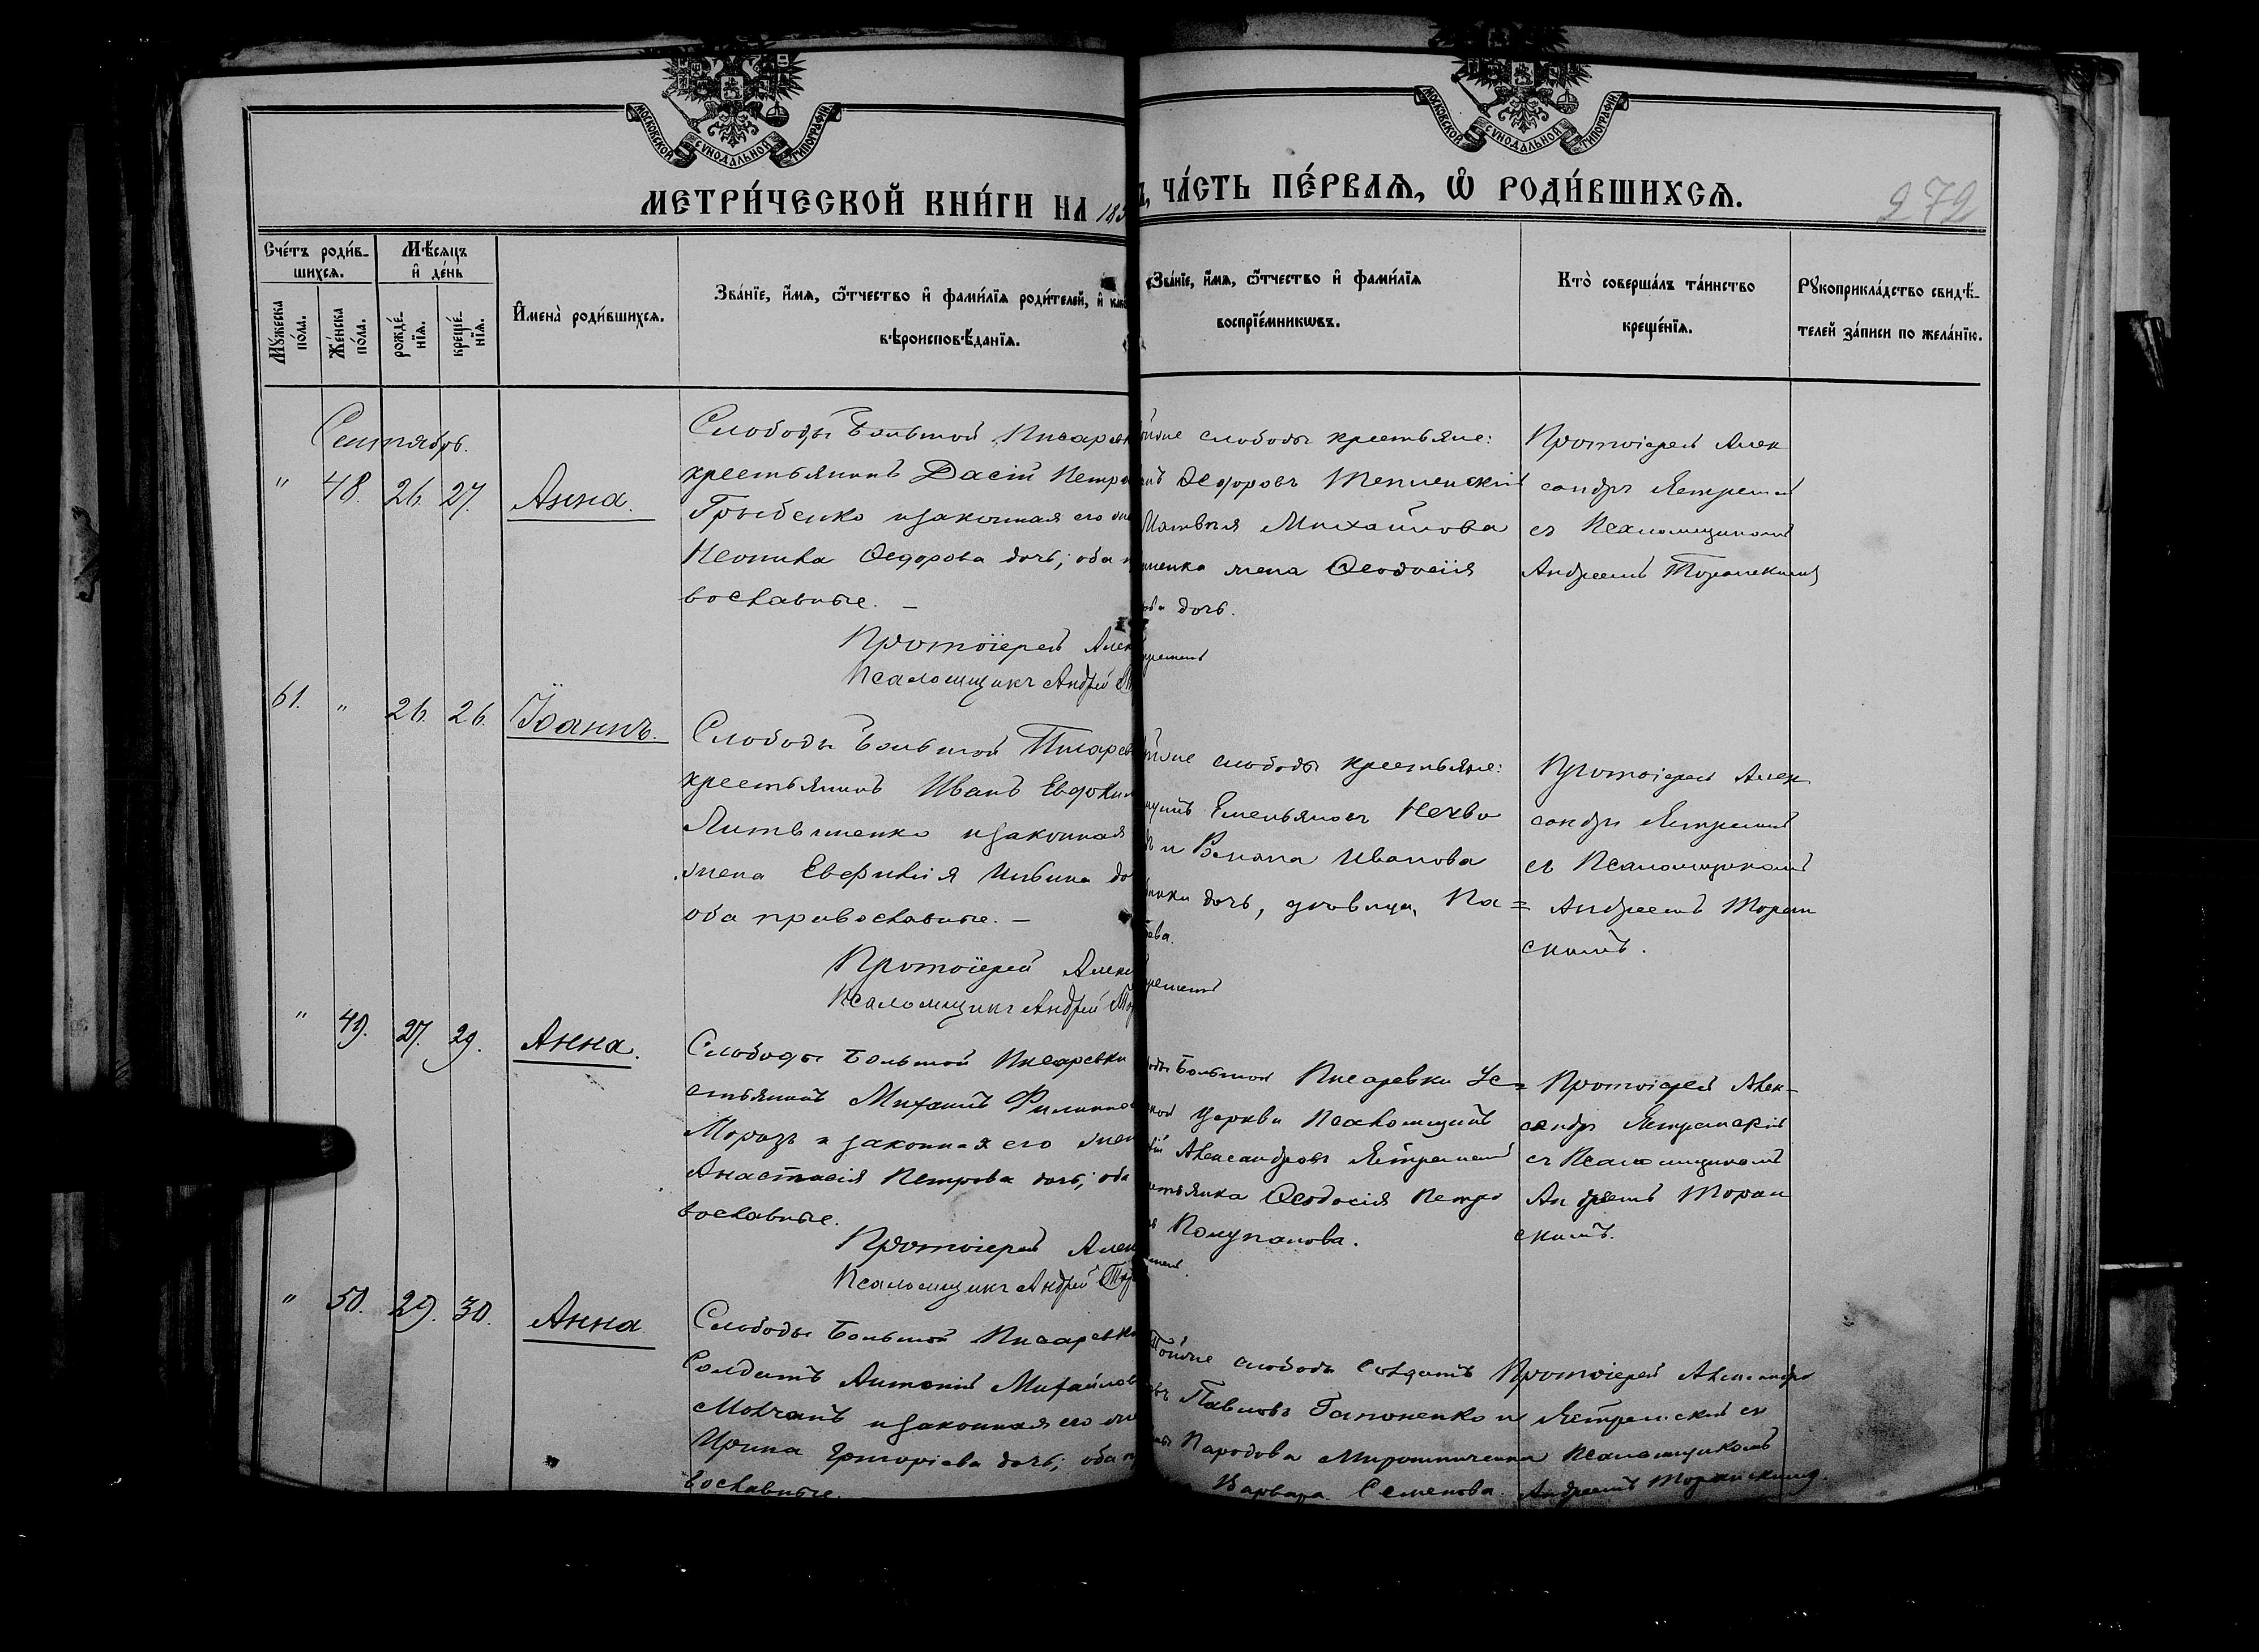 МОСКОВСКОЙ СУНОДАЛЬНОЙ ТИПОГРАФІИ
МОСКОВСКОЙ СУНОДАЛЬНОЙ ТИПОГРАФІИ
МЕТРИ́ЧЕСКОЙ КНИ́ГИ НА 18
ЧА́СТЬ ПЕ́РВАѦ, Ѿ РОДИ́ВШИХСѦ.
272
Сче́тъ роди́вшихсѧ.
Мꙋ́жеска по́ла.
Же́нска по́ла.
Мѣ́сѧцъ и҆ де́нь
рожде́нїѧ.
креще́нїѧ.
И҆мена̀ роди́вшихсѧ.
Зва́нїе, и҆́мѧ, ѻ҆́тчество и҆ фами́лїѧ роди́телей, и҆
вѣроисповѣ́данїѧ.
Зва́нїе, и҆́мѧ, ѻ҆́тчество и҆ фами́лїѧ
воспрїе́мникѡвъ.
Кто̀ соверша́лъ та́инство
креще́нїѧ.
Рꙋкоприкла́дство свидѣ́-
телей за́писи по жела́нїю.
Сентябрь.
" 48. 26. 27. Анна.
Слободы Большой Писаревк
крестьянинъ Дасій Петро
Грибенко и законная его
Леонила Ѳедорова дочь; оба
вославные. —
Протоіерей Алек
Псаломщикъ Андрей
слободы крестьяне:
Ѳедоровъ
Матвѣя Михайлова
жена Ѳеодосія
дочь.
Протоіерей Алек
сандръ Ястремскій
съ Псаломщикомъ
Андреемъ Торанскимъ
61. " 26. 26. Іоаннъ.
Слободы Большой Писарев
крестьянинъ Иванъ Евдоким
Литвиненко и законная
жена Евфимія Ильина до
оба православные. —
Протоіерей Алек
Псаломщикъ Андрей Тор
слободы крестьяне:
Емельяновъ Нехво
и Ивановa
дочь, Па=
Протоіерей Алек
сандръ Ястремскій
съ Псаломщикомъ
Андреемъ Торан
скимъ.
" 49. 27. 29. Анна.
Слободы Большой Писаревки
стьянинъ Михаилъ Филиппов
Морозъ и законная его жен
Анастасія Петрова дочь; оба
вославные.
Протоіерей Алек
Псаломщикъ Андрей Тор
Большой Писаревки Ус=
церкви Псаломщикъ
Александровъ Ястремскій
Ѳеодосія Петро
Полупанова.
Протоіерей Алек-
сандръ Ястремскій
съ Псаломщикомъ
Андреемъ Торан
скимъ.
" 50. 29. 30. Анна
Слободы Большой Писаревк
Солдатъ Антоній Михайлов
Молчанъ и законная его
Ирина Григоріева дочь; оба
вославные.
Тойже слободы Солдатъ
Павловъ Гапоненко и
Народова Мирошниченка
Варвара Семенова.
Протоіерей Александръ
Ястремскій съ
Псаломщикомъ
Андреемъ Торанскимъ.